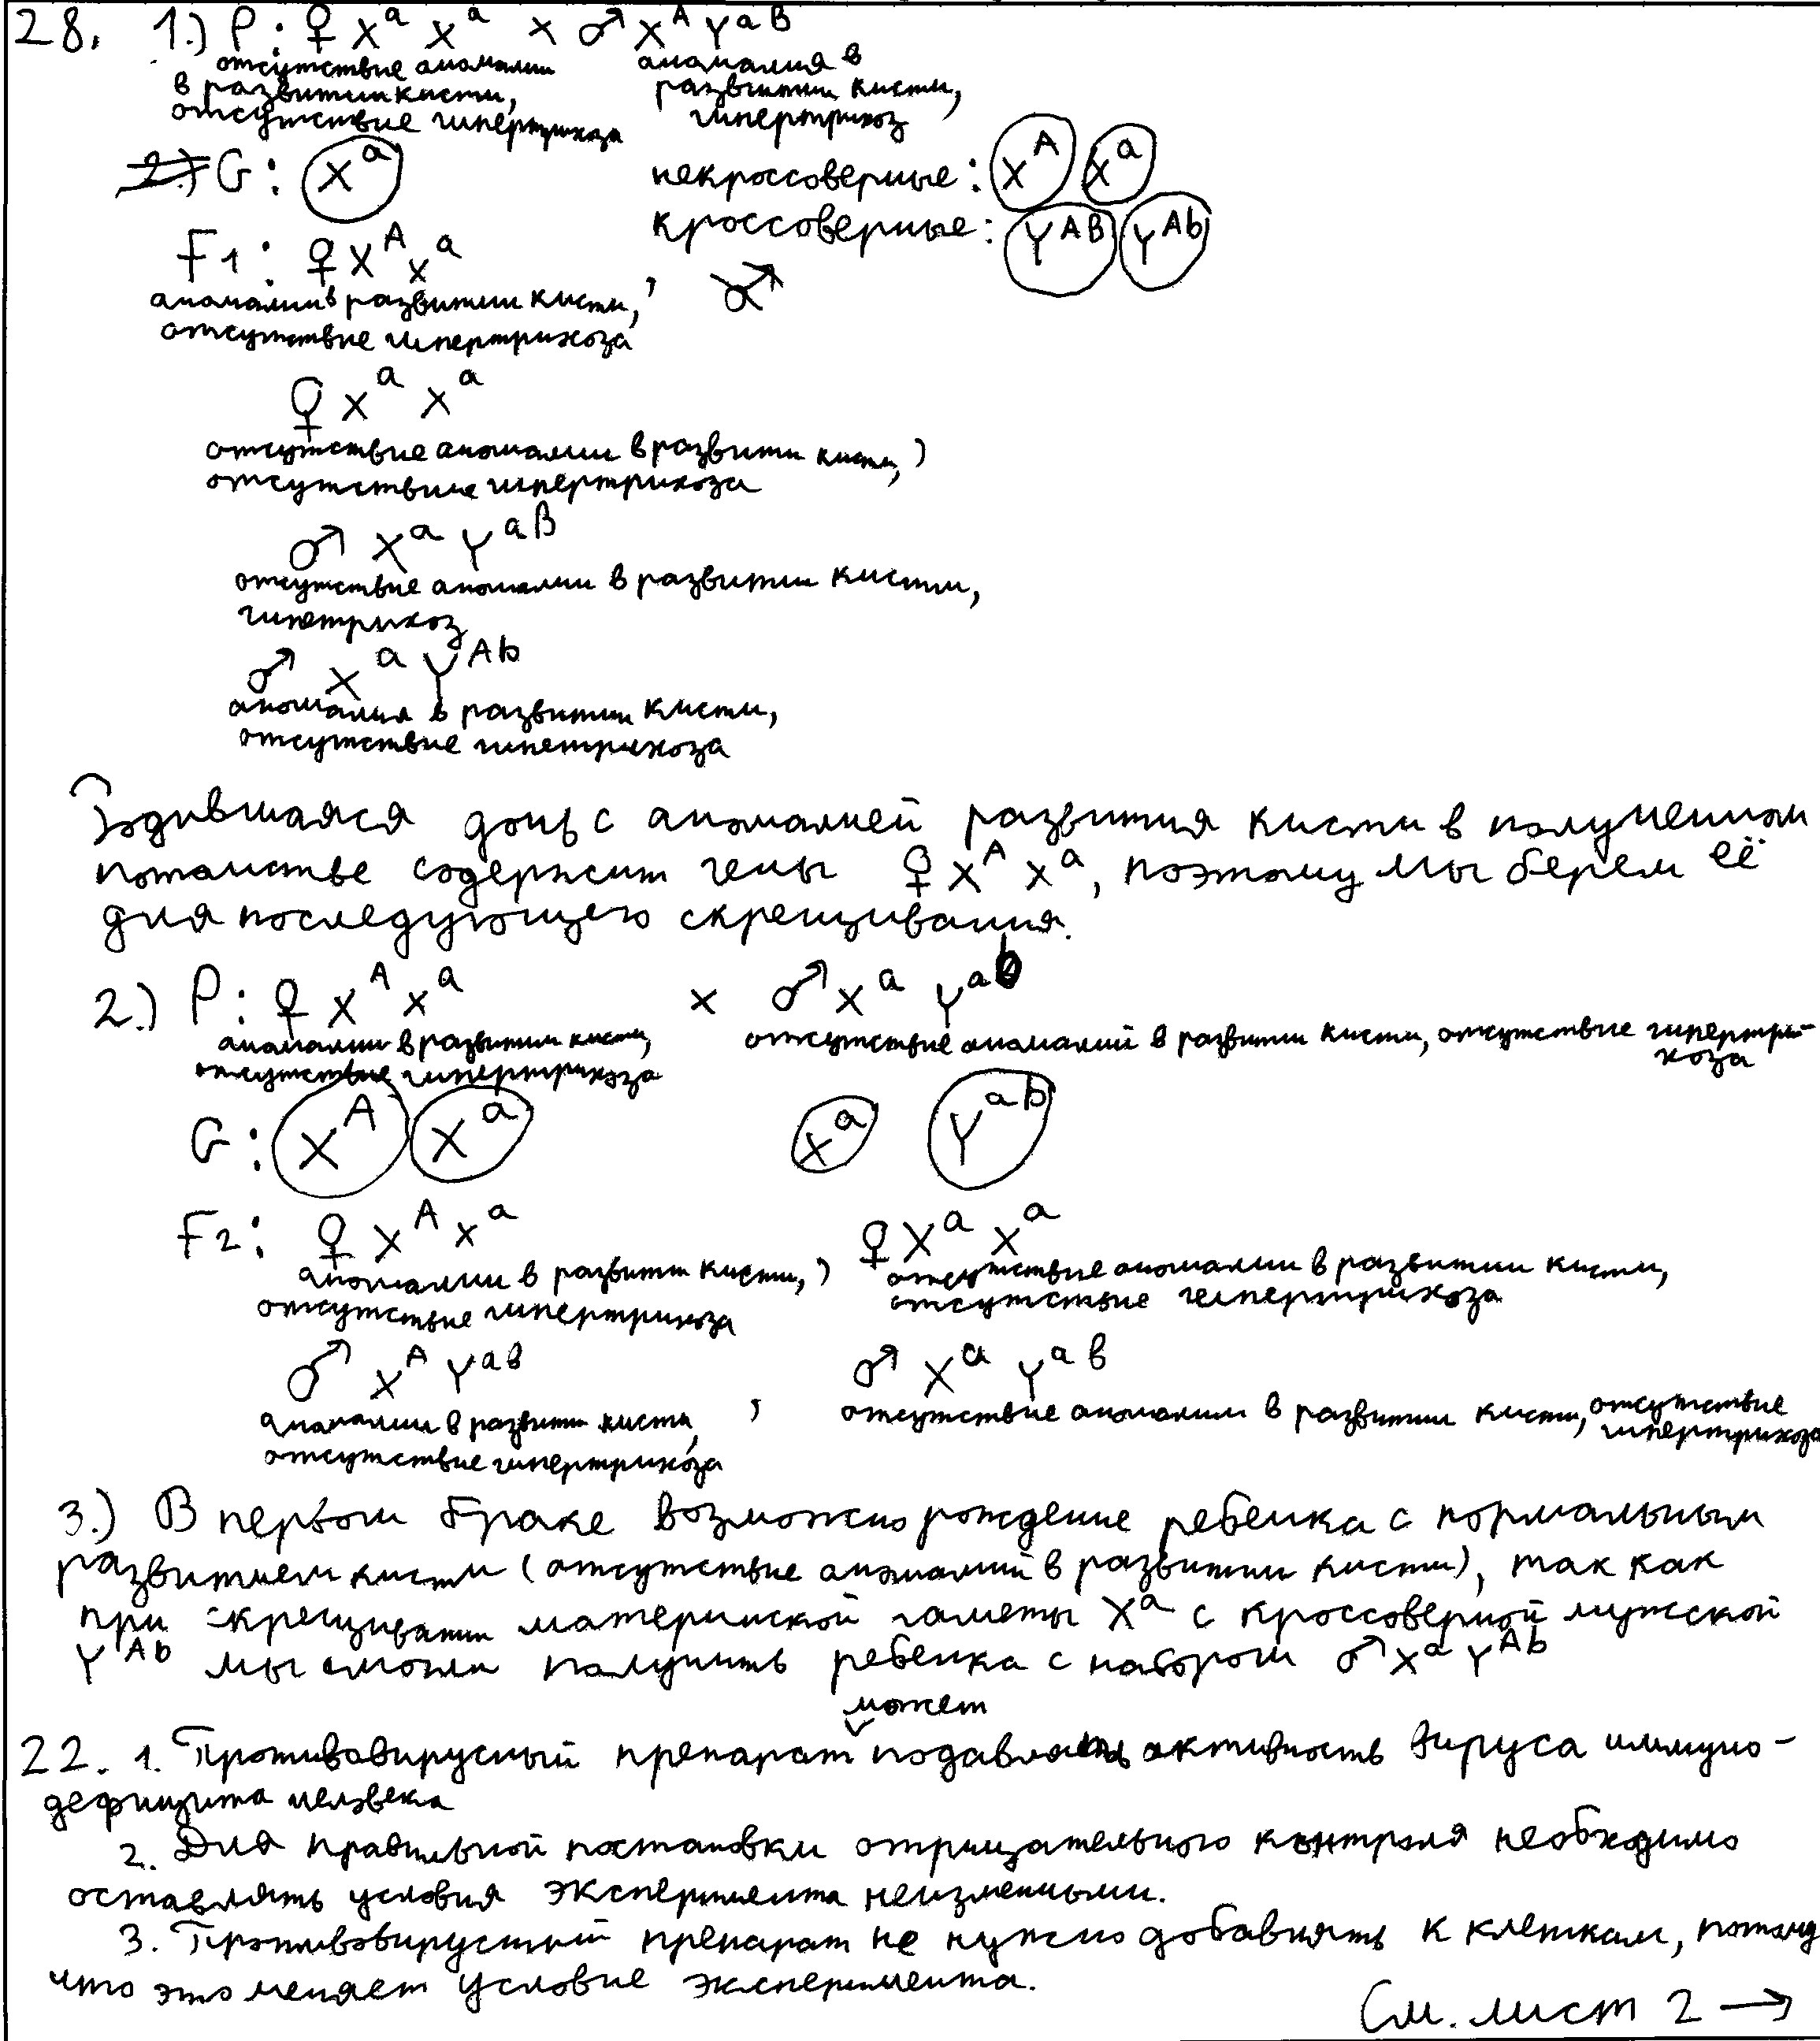 28. 1.) P: ♀ X^a X^a × ♂ X^A Y^aB
отсутствие аномалии аномалия в
в развитии кисти, развитии кисти,
отсутствие гипертрихоза гипертрихоз
G: X^a некроссоверные: X^A X^a
кроссоверные: Y^AB Y^Ab
F1: ♀ X^A X^a
аномалии в развитии кисти,
отсутствие гипертрихоза
♀ X^a X^a
отсутствие аномалии в развити кисти,
отсутствие гипертрихоза
♂ X^a Y^aB
отсутствие аномалии в развитии кисти,
гипетрихоз
♂ X^a Y^Ab
аномалия в развитии кисти,
отсутствие гипетрихоза
Родившаяся дочь с аномалией развития кисти в полученном
потомстве содержит гены ♀ X^A X^a, поэтому мы берем её
для последующего скрещивания.
2.) P: ♀ X^A X^a × ♂ X^a Y^ab
аномалии в развитии кисти, отсутствие аномалий в развитии кисти, отсутствие гипертри-
отсутствие гипертрихоза хоза
G: X^A X^a X^a Y^ab
F2: ♀ X^A X^a ♀ X^a X^a
аномалии в развити кисти, отсутствие аномалии в развитии кисти,
отсутствие гипертрихоза отсутствие гипертрихоза
♂ X^A Y^ab ♂ X^a Y^ab
аномалии в развити кисти, отсутствие аномалии в развитии кисти, отсутствие
отсутствие гипертрихоза гипертрихоза
3.) В первом браке возможно рождение ребенка с нормальным
развитием кисти (отсутствие аномалий в развитии кисти), так как
при скрещивании материнской гаметы X^a с кроссоверной мужской
Y^Ab мы смогли получить ребенка с набором ♂ X^a Y^Ab
может
22. 1. Противовирусный препарат подавлять активность вируса иммуно-
дефицита человека
2. Для правильной постановки отрицательного контроля необходимо
оставлять условия эксперимента неизменными.
3. Противовирусный препарат не нужно добавлять к клеткам, потому
что это меняет условие эксперимента.
См. лист 2 →